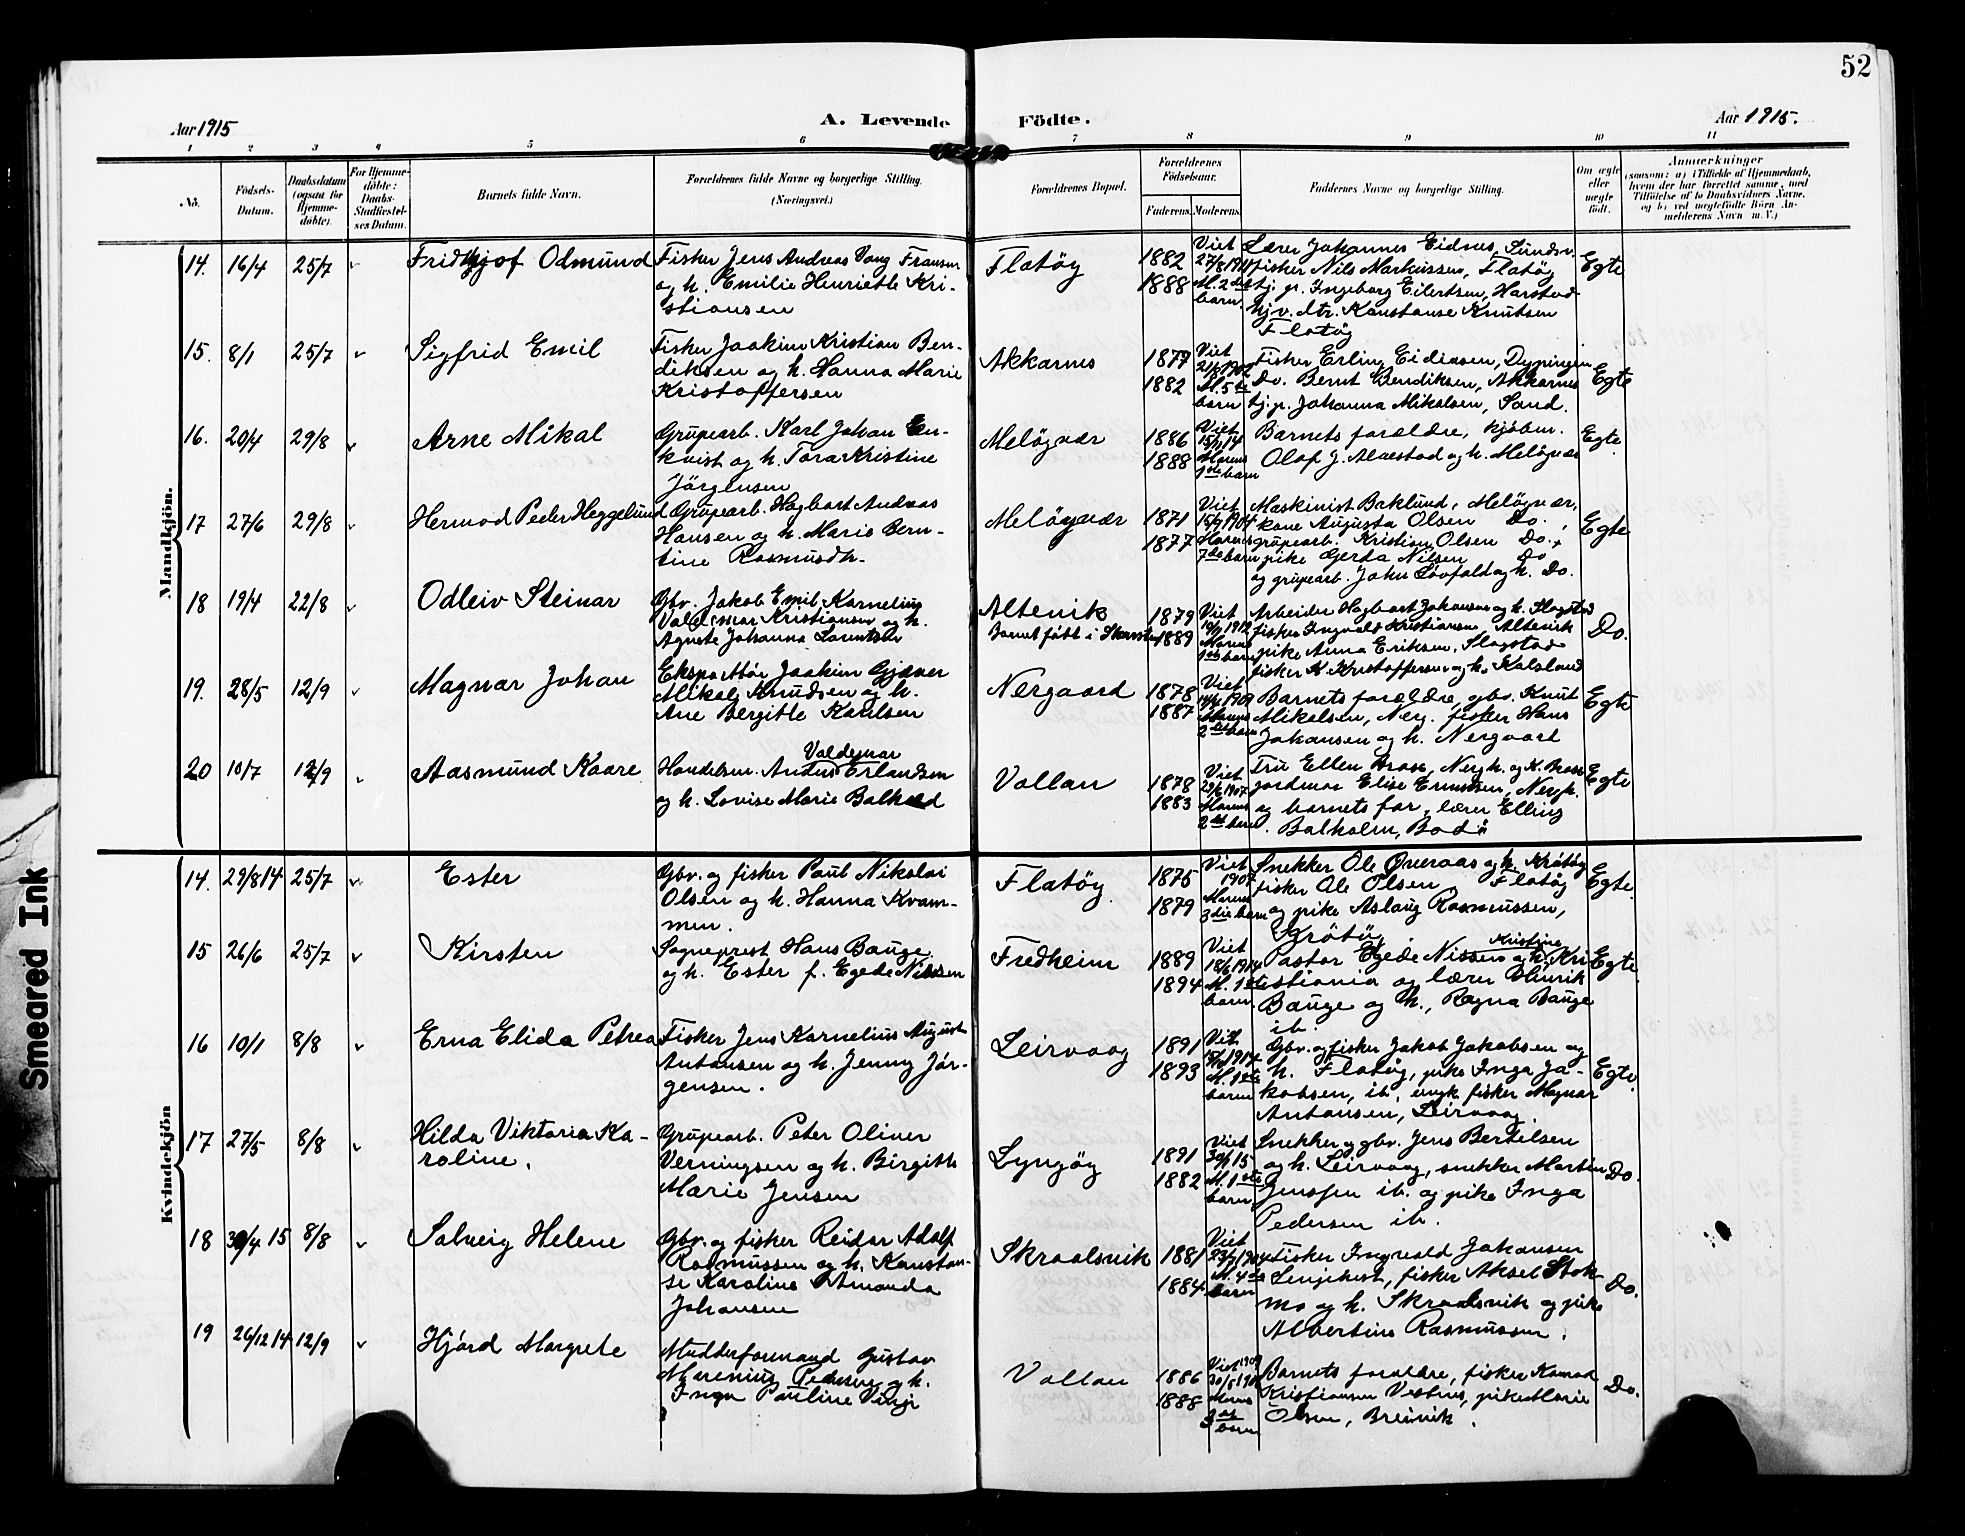 52
Aar 1915
A. Levende
Födte.
Aar 1915.
1 2 3 4 5 6 7 8 9 10 11
No.
Födsels-
Datum.
Daabsdatum
(ogsaa for
Hjemme-
døbte).
For Hjemme-
döbte:
Daabs-
Stadfæstel-
ses Datum.
Barnets fulde Navn.
Forældrenes fulde Navne og borgerlige Stilling.
(Næringsvei.)
Forældrenes Bopæl.
Forældrenes
Födselsaar.
Faderens. Moderens.
Faddernes Navne og borgerlige Stilling.
Om ægte
eller
uægte
født.
Anmærkninger
(saasom: a) i Tilfælde af Hjemmedaab,
hvem der har forrettet samme, med
Tilföielse af to Daabsvidners Navne.
og b) ved uægtefödte Börn An-
melderens Navn m. V.)
Mandkjön.
14. 16/4 25/7 Fridthjof Odmund
Fisker Jens Andreas Vang Fransen
og h. Emilie Henriette Kri-
stiansen
Flatöy
1882
1888
Viet
27/8 1911
M. 2det
barn.
Lærer Johannes Eidnes, Sundsv.
fisker Nils Markussen, Flatöy
tj. p. Ingeborg Eilertsen, Harstad
hjv. dtr. Konstanse Knutsen
Flatöy
Egte
15. 8/1 25/7 Sigfrid Emil
Fisker Joakim Kristian Ben-
diksen og h. Hanna Marie
Kristoffersen
Akkarnes
1879
1882
Viet
M. 5te
barn
Fisker Erling Eidissen, Dypingen
Do. Bernt Bendiksen, Akkarnes
tj. p. Johanna Mikalsen, Sand.
Egte
16. 20/4 29/8 Arne Mikal
Grubearb. Karl Johan En-
kvist og h. Tora Kristine
Jörgensen
Melöyvær
1886
1888
Viet
15/11 14
Morens
1ste barn
Barnets forældre, kjöbm.
Olaf J. Alvestad og h. Melöyvær
Egte
17 27/6 29/8 Hermod Peder Heggelund
Grubearb. Hagbart Andreas
Hansen og h. Marie Bern-
tine Rasmusdtr.
Melöyvær
1871
1877
Viet
15/9 1904
Morens
7de barn
Maskinist Beklund, Melöyvær,
kone Augusta Olsen Do.,
grubearb. Kristian Olsen Do.,
pike Gerda Nilsen Do
og grubearb. John Lövfald og h. Do.
Egte
18 19/4 22/8 Odleiv Steinar
Gbr. Jakob Emil Kornelius
Valdemar Kristiansen og h.
Agnete Johanna Lorentsen
Altevik
Barnet född i
1879
1889
Viet
1912
Morens
1ste barn
Arbeider Hagbart Johansen og h. Slagstad
fisker Ingvald Kristiansen, Altevik
pike Anna Eriksen, Slagstad
fisker K. Kristoffersen og h. Kalsland
Do.
19. 28/5 12/9 Magnar Johan
Ekspeditör Joakim Gjæver
Mikal Knudsen og h.
Ane Bergitte Karlsen
Nergaard
1878
1887
Viet
1909
Morens
2det barn
Barnets forældre, gbr. Knut
Mikalsen, Nerg. fisker Hans
Johansen og h. Nergaard
Egte
20 10/7 12/9 Aasmund Kaare
Valdemar
Handelsm. Anders Erlandsen
og h. Lovise Marie Balk
Vollan
1878
1883
Viet
29/6 1907
Morens
2det barn
Fru Ellen Brose, Nergh. og K. Brose
jordmor Elise Ernstsen, Nergh.
og barnets far, lærer Elling
Balholm, Bodö
Egte
Kvindekjön
14. 29/8 14 25/7 Ester
Gbr. og fisker Paul Nikolai
Olsen og h. Hanna Kvam-
men.
Flatöy.
1875
1879
Viet
1907
Morens
3die barn
Snekker Ole Överaas og h. Krötöy
fisker Ole Olsen Flatöy
og pike Aslaug Rasmussen,
Krötöy
Egte.
15 26/6 25/7 Kirsten
Sogneprest Hans Bauge
og h. Ester f. Egede Nissen
Fredheim
1889
1894
Viet
18/6 1914
M. 1ste
barn.
Kristine
Pastor Egede Nissen og h. Kri
stiania og lærer Hinrik
Bauge og h., Ragna Bauge
ib.
Egte.
16 10/1 8/8 Erna Elida Petrea
Fisker Jens Kornelius August
Antonsen og h. Jenny Jör-
gensen.
Leirvaag
1891
1893
Viet
1914
M. 1ste
barn
Gbr. og fisker Jakob Jakobsen og
h. Flatöy, pike Inga Ja-
kobsen, ib., ungk. fisker Magnar
Antonsen, Leirvaag.
Egte.
17 27/5 8/8 Hilda Viktoria Ka-
roline.
Grubearb. Peter Oliver
Verningsen og h. Birgitte
Marie Jensen
Lyngöy
1891
1882
Viet
30/1 15
M. 1ste
barn
Snekker og gbr. Jens Bertilsen
og h. Leirvaag, snekker Martin
Jenssen ib. og pike Inga
Pedersen ib.
Do.
18 30/4 15 8/8 Solveig Helene
Gbr. og fisker Reidar Adolf
Rasmussen og h. Konstan-
se Karoline Amanda
Johansen
Skraalsvik
1881
1884
Viet
M. 4de
barn
Fisker Ingvald Johansen
fisker Aksel Stok-
mo og h. Skraalsvik og pike
Albertine Rasmussen.
Do.
19 26/12 14 12/9 Hjörd Margrete
Mudderformand Gustav
Marenius Pedersen og h.
Inga Pauline Vinje
Vollan
1886
1888
Viet 1909
Morens
3die
barn
Barnets forældre, fisker Konrad
Kristiansen Vestnes, pike Marie
Olsen, Breivik.
Do.
Smeared Ink